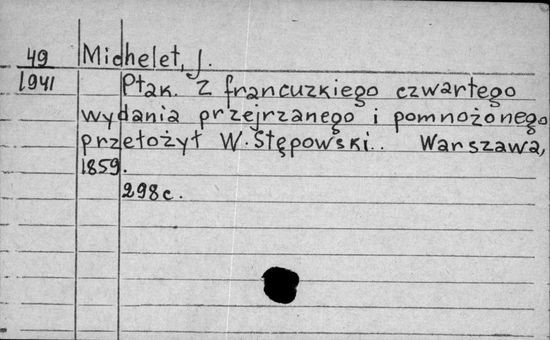 49 Michelet, J.
1941 Ptak. Z francuzkiego czwartego
wydania przejrzanego i pomnożonego
przełożył W. Stępowski.. Warszawa,
1859.
298 c.